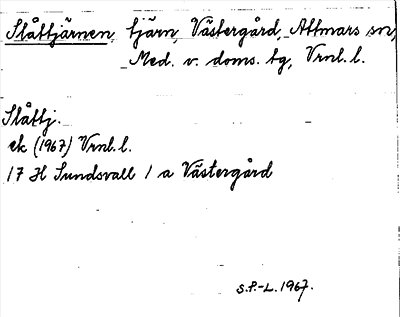 Slåttjärnen, tjärn, Västergård, Attmars sn,
Med. v. doms. tg, Vrnl. l.
Slåttj.
ek (1967) Vrnl. l.
17 H Sundsvall 1 a Västergård
S.P.-L. 1967.